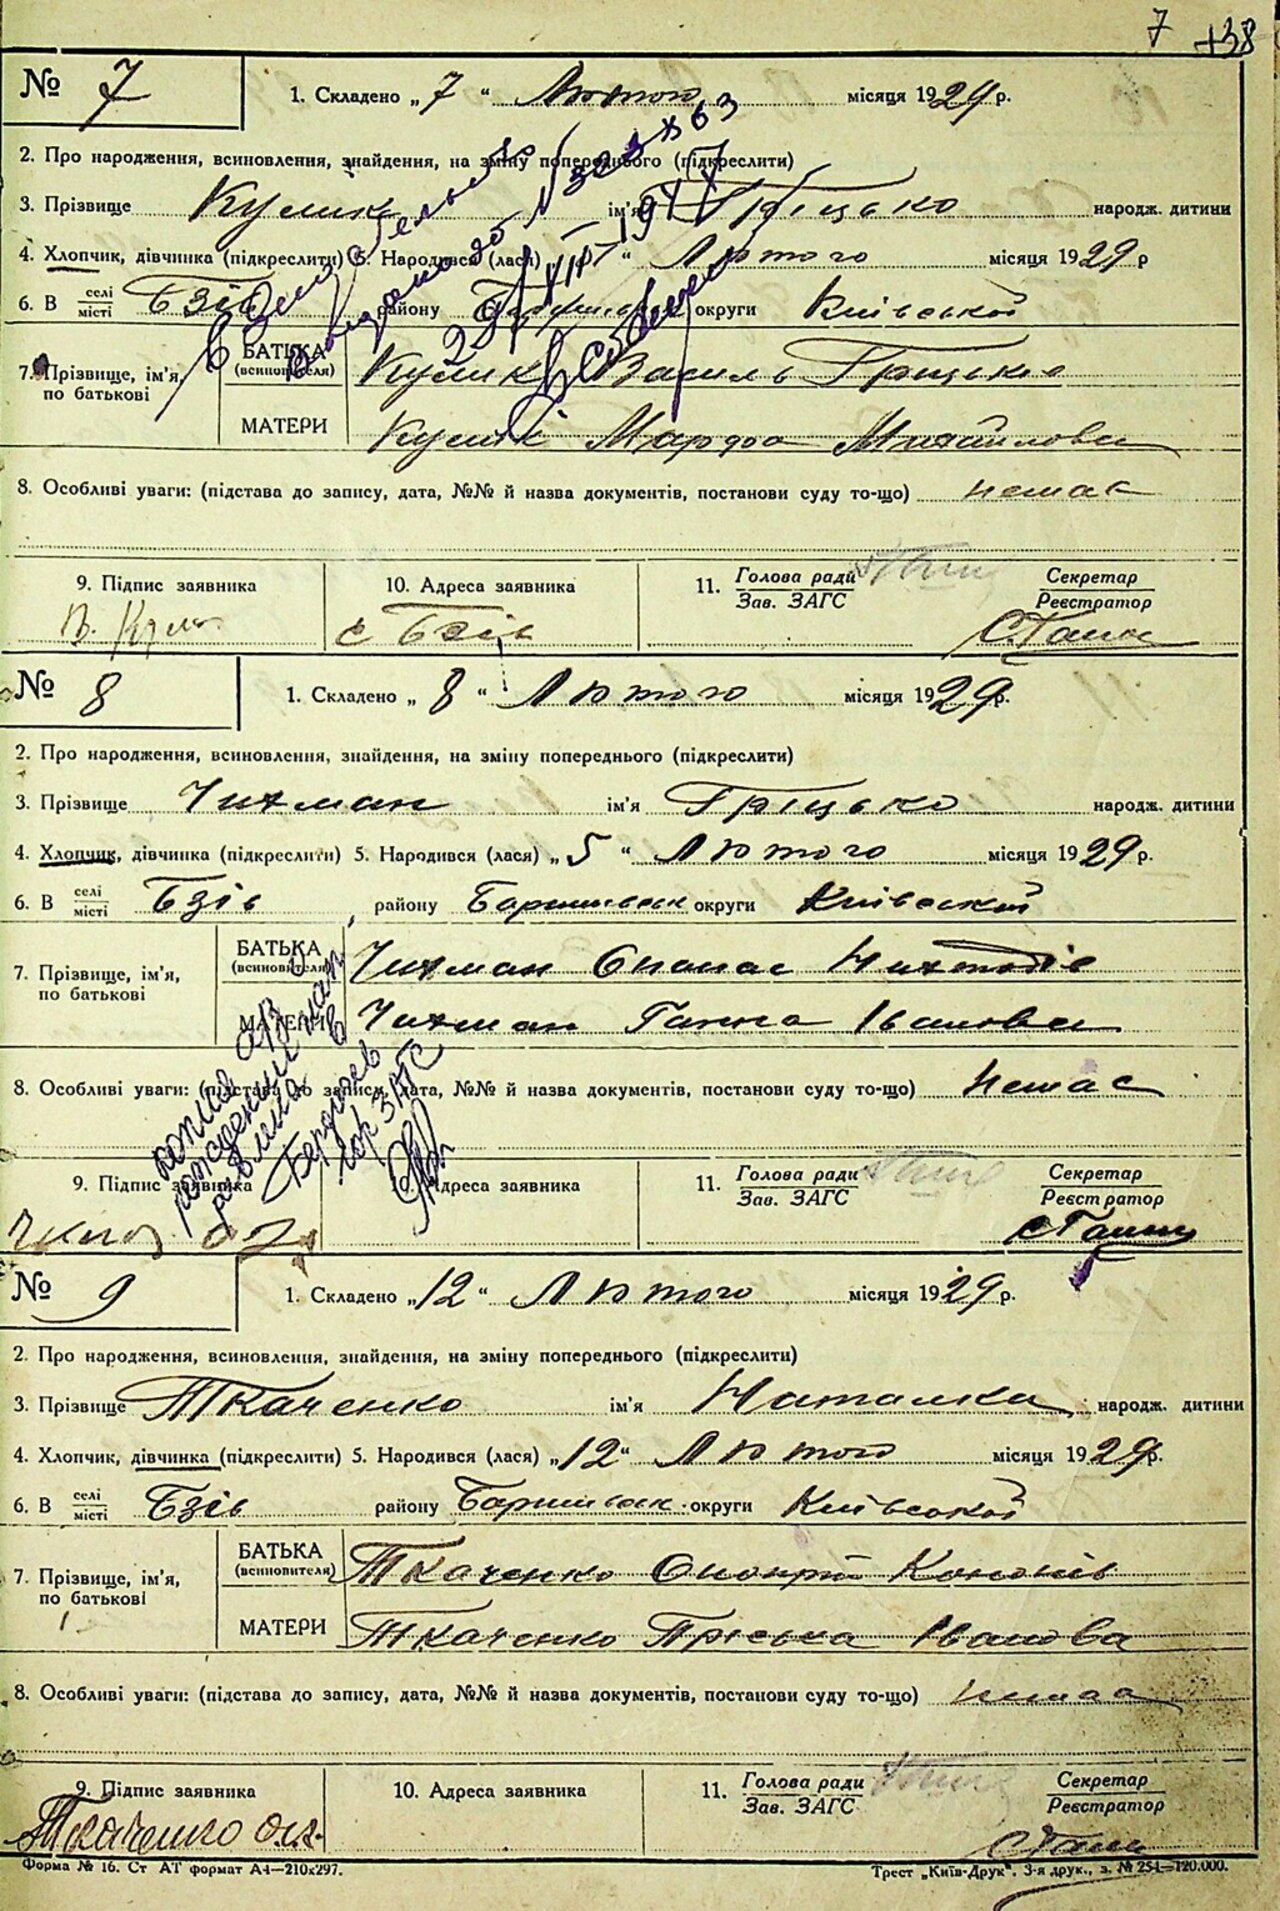 7 +38
№ 7 1. Складено „7“ Лютого місяця 1929 р.
2. Про народження, всиновлення, знайдення, на зміну попереднього (підкреслити)
3. Прізвище Кулик ім'я Гріцько народж. дитини
4. Хлопчик, дівчинка (підкреслити) 5. Народився (лася) “ Лютого місяця 1929 р
6. В селі місті Бзів району округи Київської
7. Прізвище, ім'я, по батькові БАТЬКА (всиновителя) Кулик Василь Грицько
МАТЕРИ Кулик Марфа Михайлова
8. Особливі уваги: (підстава до запису, дата, №№ й назва документів, постанови суду то-що) немає
9. Підпис заявника 10. Адреса заявника 11. Голова ради Зав. ЗАГС Секретар Реєстратор
В. Кули с Бзів
29/XII 1947
№ 8 1. Складено „8“ Лютого місяця 1929 р.
2. Про народження, всиновлення, знайдення, на зміну попереднього (підкреслити)
3. Прізвище Чихман ім'я Гріцько народж. дитини
4. Хлопчик, дівчинка (підкреслити) 5. Народився (лася) „5“ Лютого місяця 1929 р.
6. В селі місті Бзів району Баришівськ округи Київської
7. Прізвище, ім'я, по батькові БАТЬКА (всиновителя) Чихман Опанас
МАТЕРИ Чихман Ганна Іванова
8. Особливі уваги: (підстава до запису, дата, №№ й назва документів, постанови суду то-що) немає
копия о рождении в Бердичев гор ЗАГС
9. Підпис заявника 10. Адреса заявника 11. Голова ради Зав. ЗАГС Секретар Реєстратор
№ 9 1. Складено „12“ Лютого місяця 1929 р.
2. Про народження, всиновлення, знайдення, на зміну попереднього (підкреслити)
3. Прізвище Ткаченко ім'я Наталка народж. дитини
4. Хлопчик, дівчинка (підкреслити) 5. Народився (лася) „12“ Лютого місяця 1929 р.
6. В селі місті Бзів району Баришівськ округи Київської
7. Прізвище, ім'я, по батькові БАТЬКА (всиновителя) Ткаченко Онопрій Кононів
МАТЕРИ Ткаченко Пріська Іванова
8. Особливі уваги: (підстава до запису, дата, №№ й назва документів, постанови суду то-що) немає
9. Підпис заявника 10. Адреса заявника 11. Голова ради Зав. ЗАГС Секретар Реєстратор
Ткаченко
Форма № 16. Ст АТ формат А4—210х297. Трест „Київ-Друк“. 3-я друк., з. № 254—120.000.